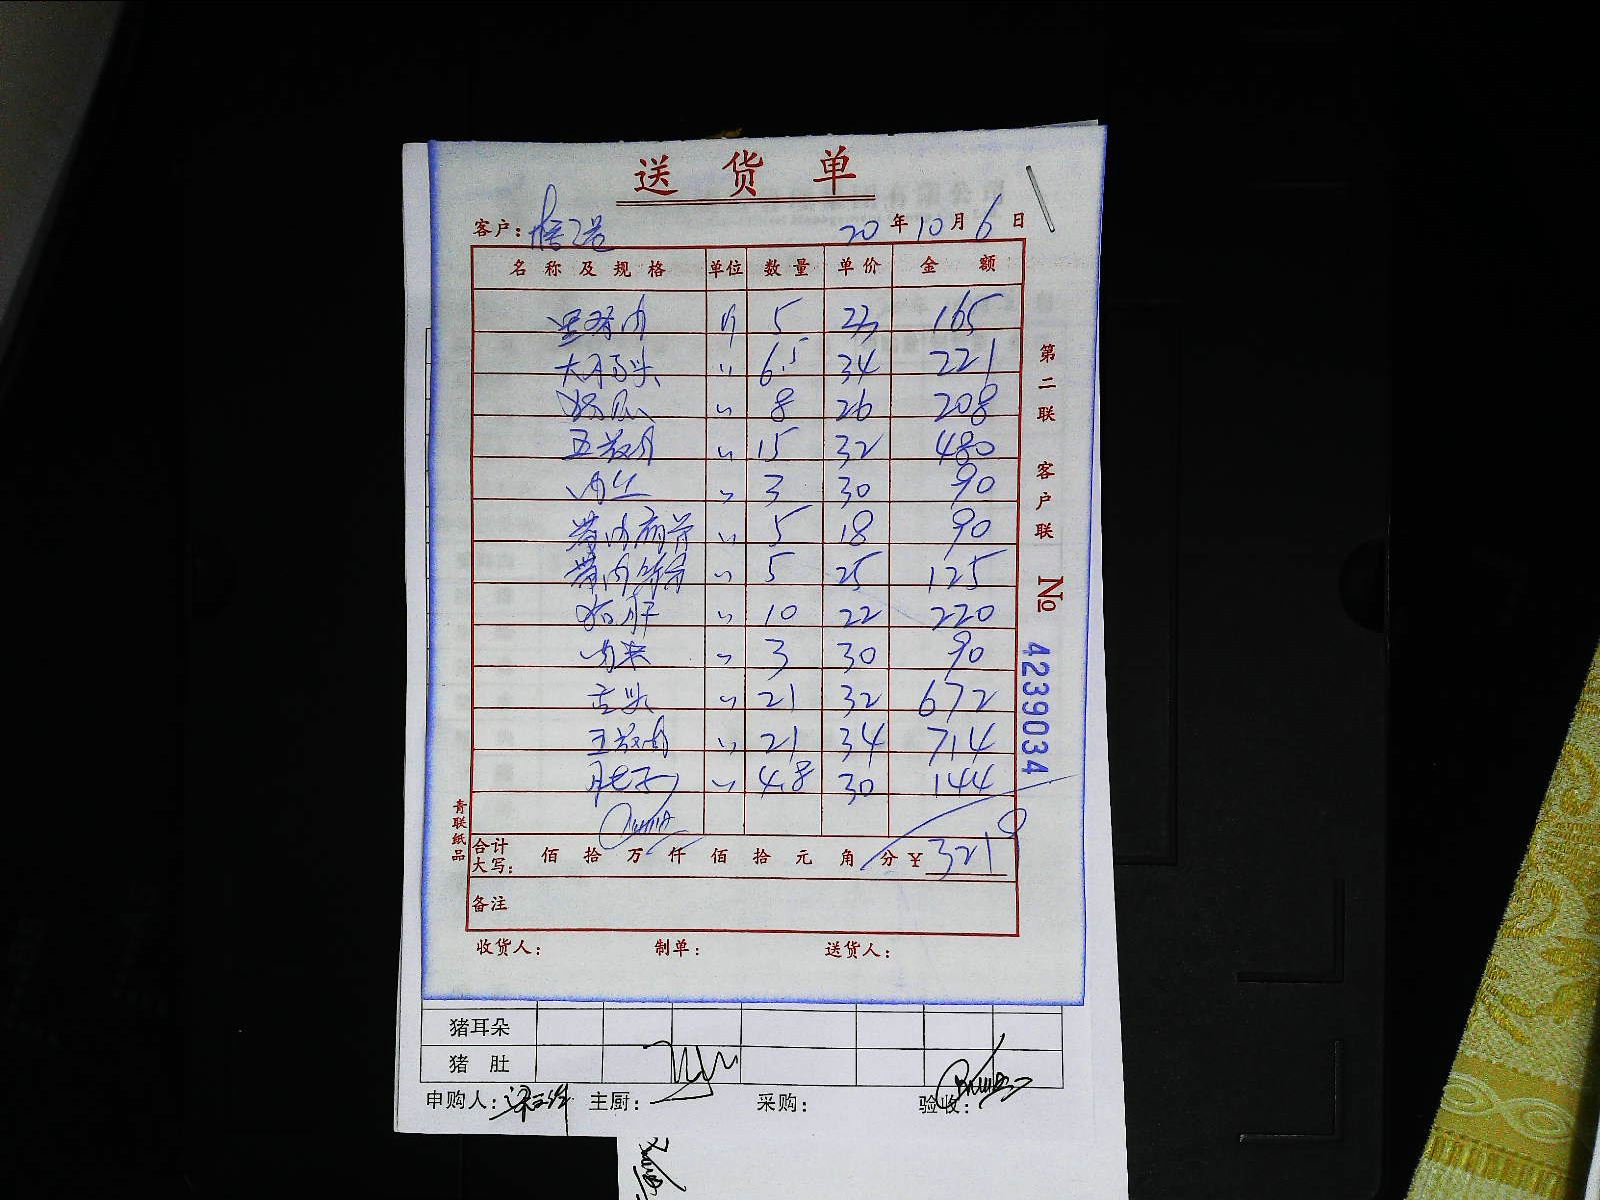 送货单
客户: 20年10月6日
名称及规格 单位 数量 单价 金额
里脊肉 斤 5 33 165
大骨头 〃 6.5 34 221
〃 8 26 208
五花肉 〃 15 32 480
肉丝 〃 3 30 90
带肉扇骨 〃 5 18 90
带肉 〃 5 25 125
猪肝 〃 10 22 220
肉末 〃 3 30 90
舌头 〃 21 32 672
五花肉 〃 21 34 714
肚子 〃 4.8 30 144
合计大写: 佰 拾 万 仟 佰 拾 元 角 分 ¥3219
备注
收货人: 制单: 送货人:
第二联 客户联
No 4239034
青联纸品
猪耳朵
猪 肚
申购人: 主厨: 采购: 验收: